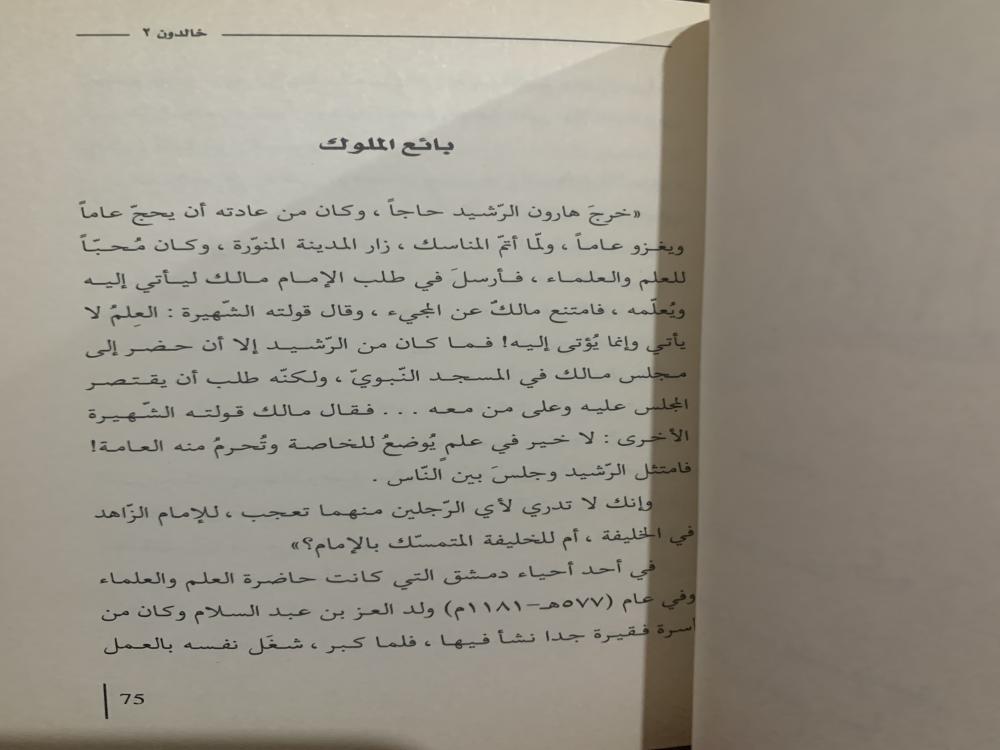 خالدون ٢
بائع الملوك
«خرجَ هارون الرّشيد حاجاً ، وكان من عادته أن يحجّ عاماً
ويغزو عاماً ، ولمّا أتمّ المناسك ، زار المدينة المنوّرة ، وكان مُحبّاً
للعلم والعلماء ، فأرسلَ في طلب الإمام مالك ليأتي إليه
ويُعلّمه ، فامتنع مالكٌ عن المجيء ، وقال قولته الشّهيرة : العِلمُ لا
يأتي وإنما يُؤتى إليه! فما كان من الرّشيد إلا أن حضر إلى
مجلس مالك في المسجد النّبويّ ، ولكنّه طلب أن يقتصر
المجلس عليه وعلى من معه ... فقال مالك قولته الشّهيرة
الأخرى : لا خير في علمٍ يُوضعُ للخاصة وتُحرمُ منه العامة!
فامتثل الرّشيد وجلسَ بين النّاس .
وإنك لا تدري لأي الرّجلين منهما تعجب ، للإمام الزّاهد
في الخليفة ، أم للخليفة المتمسّك بالإمام؟»
في أحد أحياء دمشق التي كانت حاضرة العلم والعلماء
وفي عام (٥٧٧هـ-١١٨١م) ولد العز بن عبد السلام وكان من
اسرة فقيرة جدا نشأ فيها ، فلما كبر ، شغَل نفسه بالعمل
75